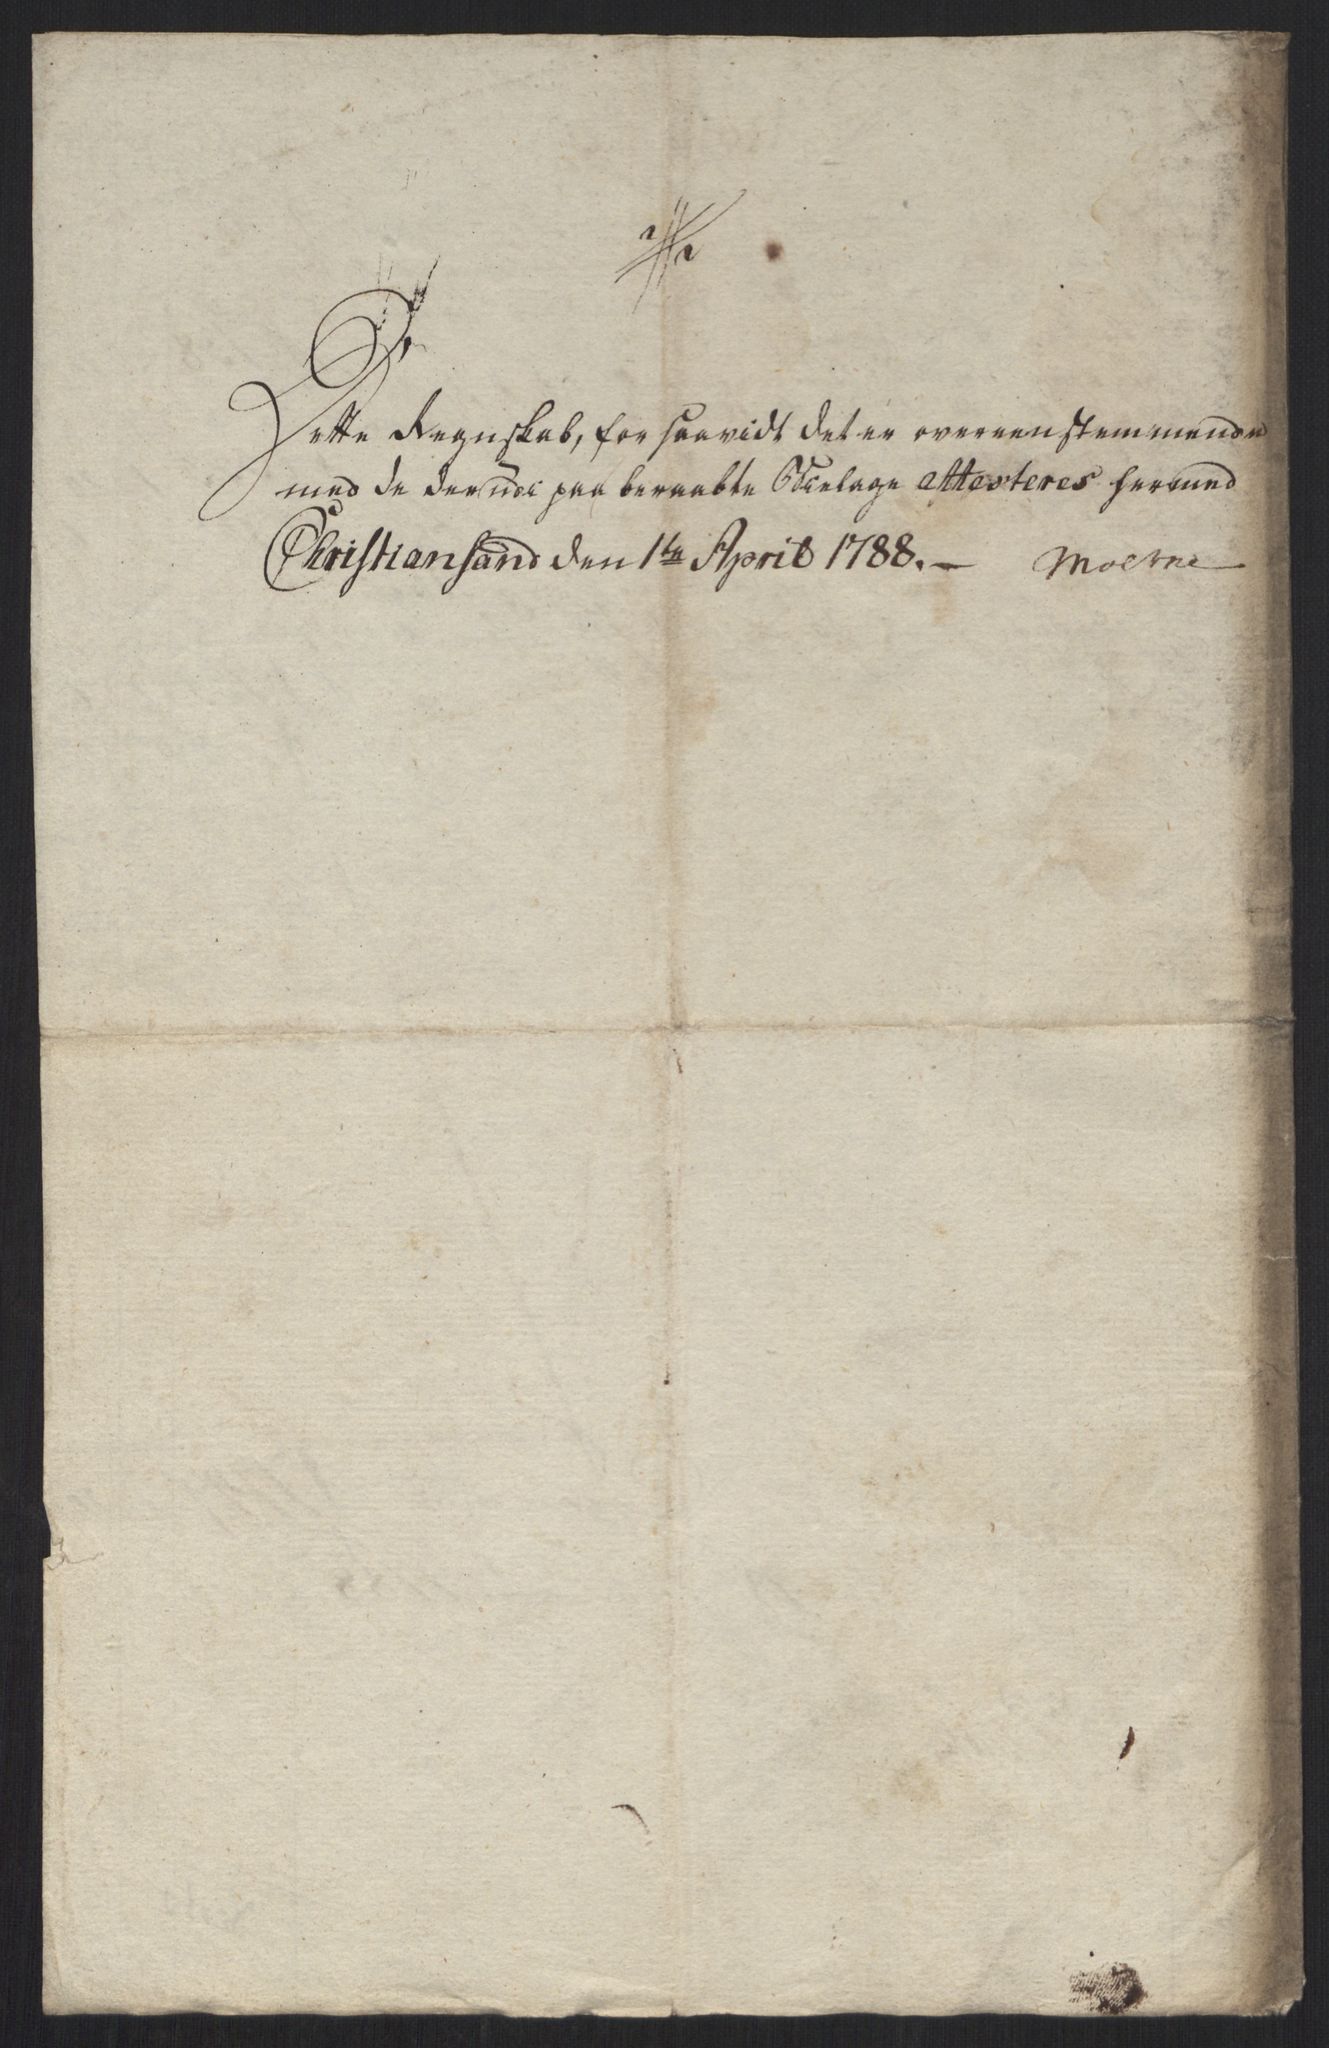 Dette Regnskab, forsaavidt det er overeenstemmende
med de derudi paa beraabte Bielage Attesteres hermed
Christiansand den 1te April 1788. –